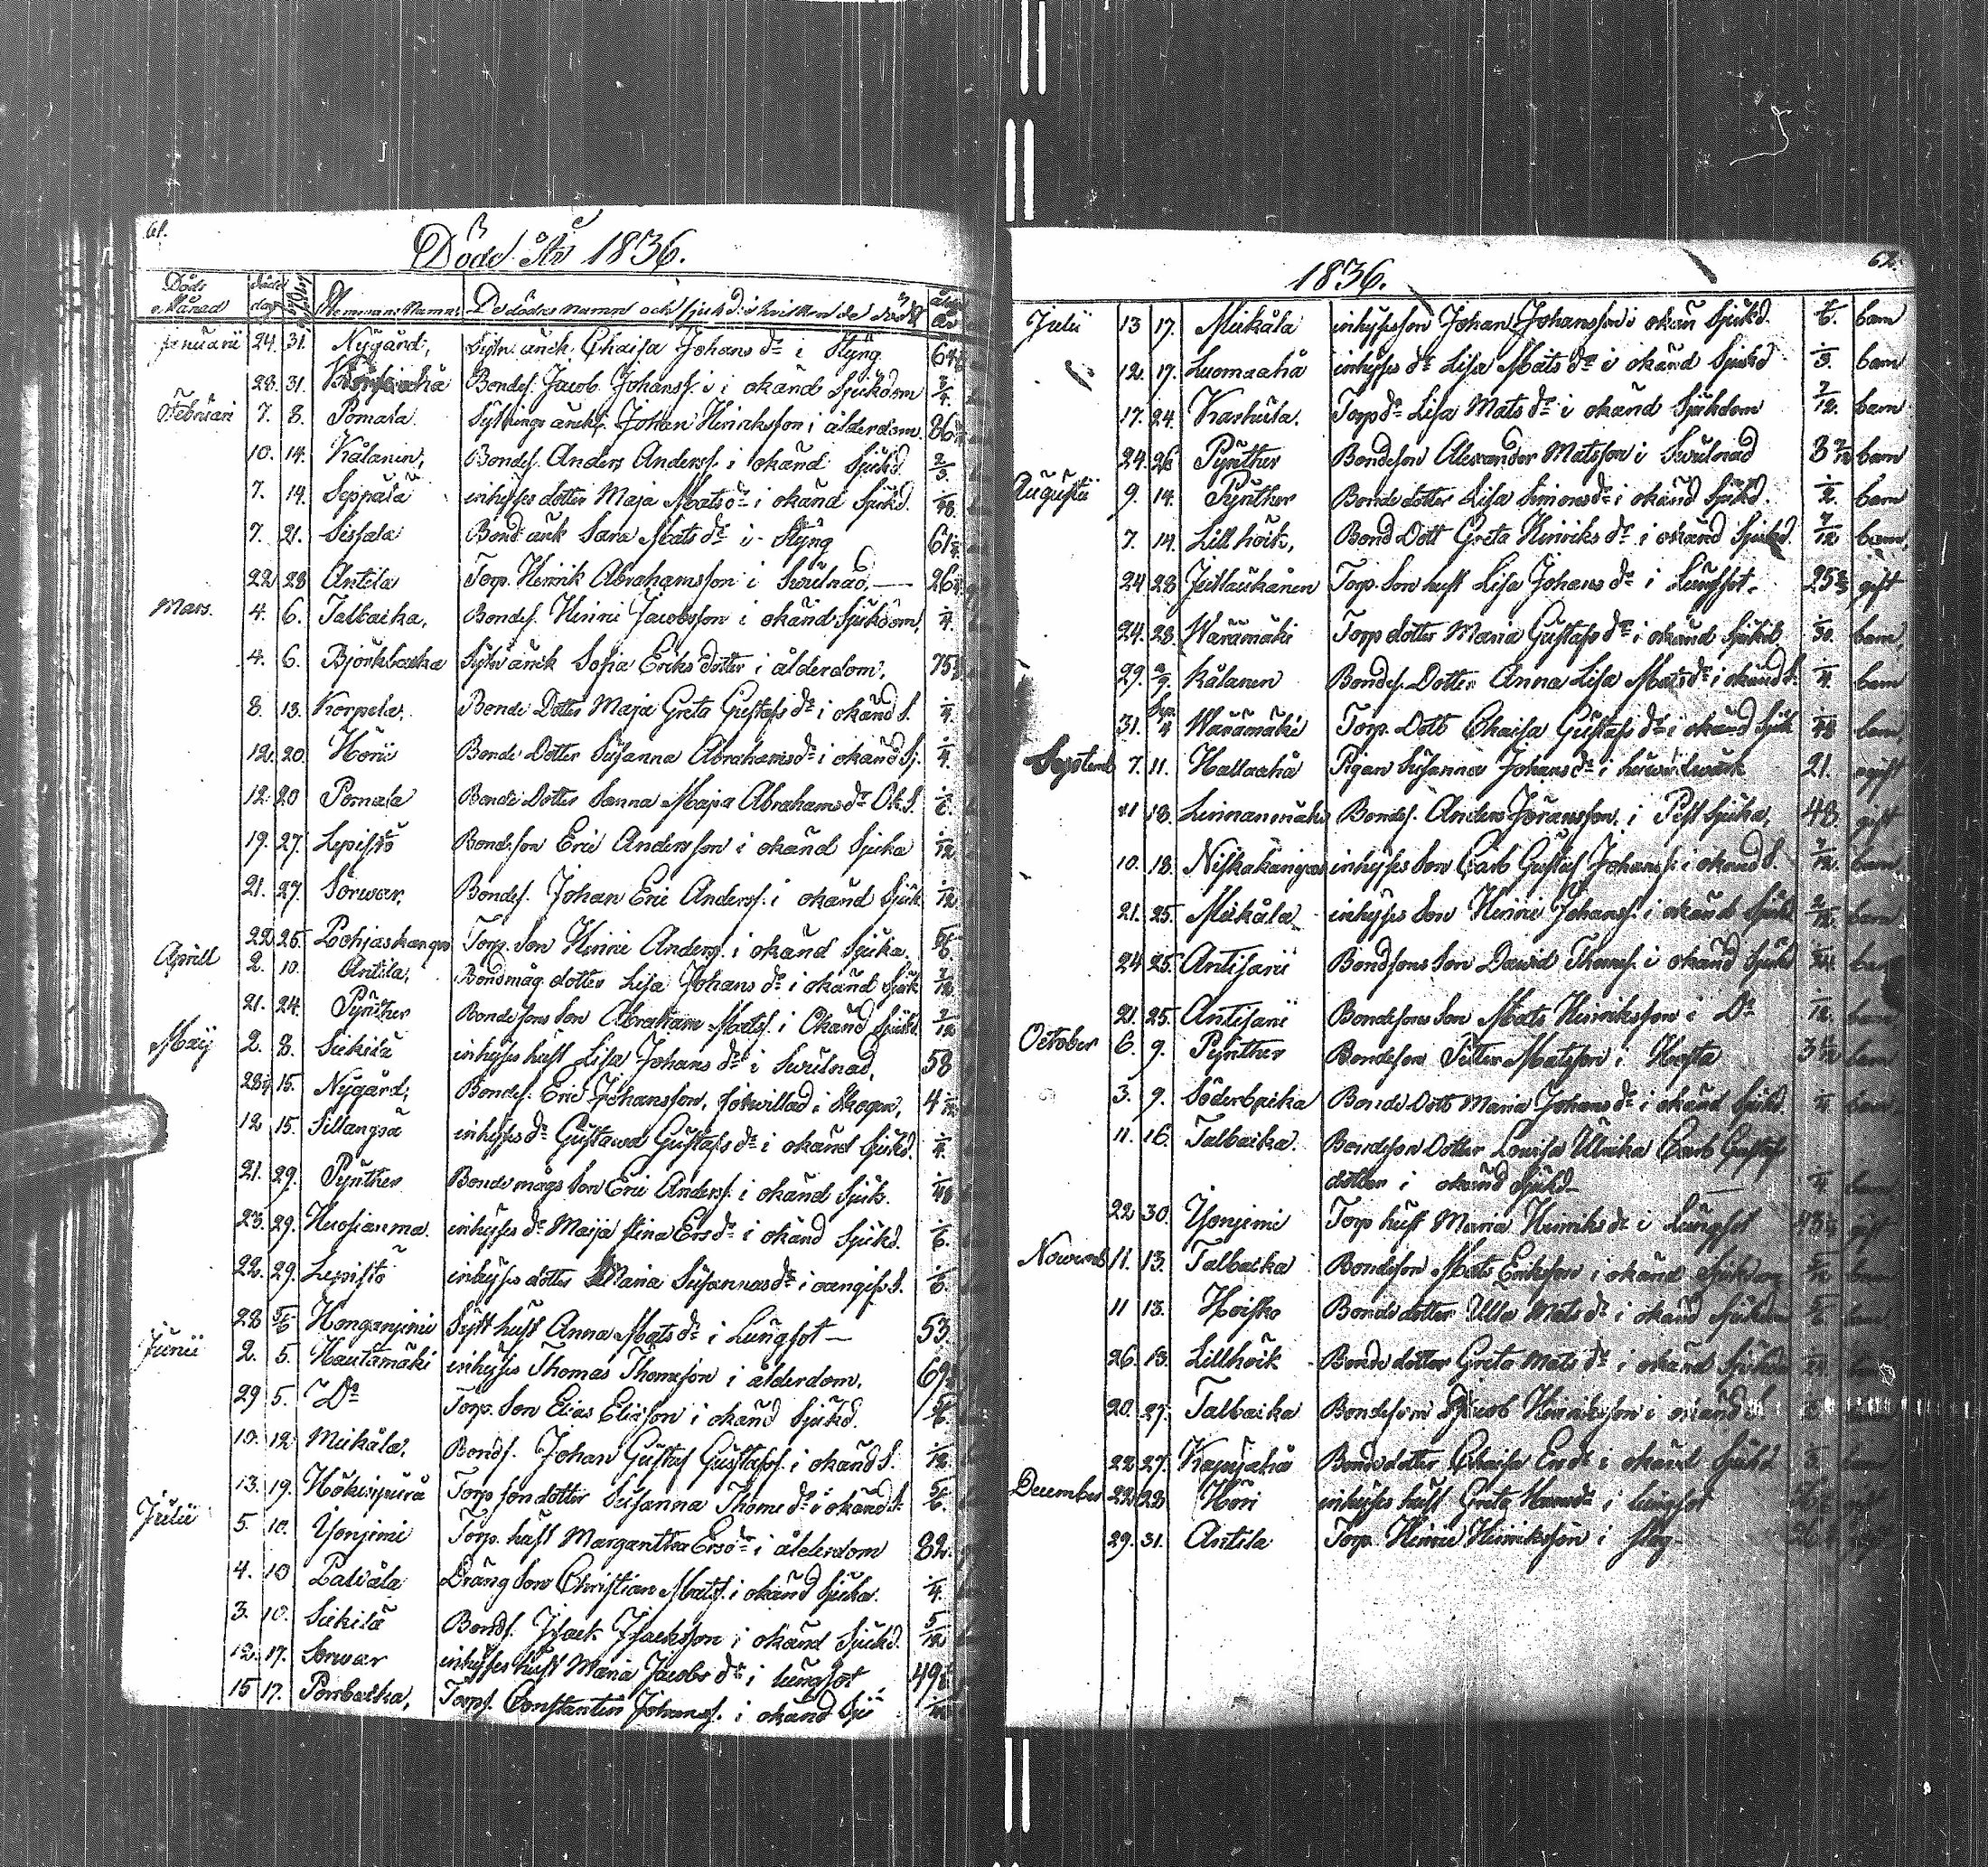 61.
Döde År 1836.
Döds Månad döds dag Hemmans Namn De dödas namn och sjukd: i hvilken de dödt ålder år
Januarii 24. 31. Nygård, Sytn. änck. Chaisa Johans dr i Styng
28. 31. Bondes. Jacob Johanss. i okänd Sjukdom 3/4.
Februari 7. 8. Pomala. Sytnings änckl. Johan Hinriksson i ålderdom. 86
10. 14. Kålanen, Bondes. Anders Anderss. i okänd Sjukd. 2/3.
7. 14. Seppälä inhyses dotter Maja Mats dr i okänd Sjukd. 1/48.
7. 21. Sissala Bond änk Sara Mats dr i Styng 61
22 28 Antila Torp. Henrik Abrahamsson i Swulnad, 26
Mars. 4. 6. Talbacka, Bondes. Hinric Jacobsson i okänd Sjukdom, 1/4.
4. 6. Björkbacka Sytn änck Sofia Eriks dotter i ålderdom, 75
8. 13. Korpela, Bonde Dotter Maja Greta Gustafs dr i okänd S. 1/4.
12. 20. Höri Bonde Dotter Susanna Abrahams dr i okänd Sj. 1/4.
12. 20 Pomala Bonde Dotter Sanna Maja Abrahams dr Ok. S. 1/6.
19. 27. Lepistö Bondeson Eric Andersson i okänd Sjuka 1/12
21. 27. Sorwar, Bondes. Johan Eric Anderss. i okänd Sjuk. 1/12
22 25. Pohjaskangas Torp. Son Hinric Anderss. i okänd Sjuka. 5/6.
Aprill 2. 10. Antila, Bondsmåg dotter Lisa Johans dr i okänd Sjuk 7/12
21. 24. Pynther Bondesons Son Abraham Matss. i Okänd Sjukd. 7/12
Maij 2. 8. Sickilä inhyses hust Lisa Johans dr i Swulnad, 58
15. Nygård, Bondes. Eric Johansson, förwillad i Skogen, 4
12 15. Sillangså inhyses dr Gustawa Gustafs dr i okänd Sjukd. 1/4.
21. 29. Pynther Bonde mågs Son Eric Anderss. i okänd Sjuk. 1/48
23. 29. Huosianma. inhyses dr Maja Stina Ers dr i okänd Sjukd. 1/6.
22. 29. Lepistö inhyses dotter Maria Susannas dr i oangifs S. 1/6.
28 5/6 Honganjemi Sytt hust Anna Mats dr i Lungsot — 53.
Junii 2. 5. Hautamäki inhyses Thomas Thomsson i ålderdom, 69
29 5. Do Torp. Son Elias Eliasson i okänd Sjukd.
10. 12 Mickåla, Bonds. Johan Gustaf Gustafss. i okänd S. 1/12
13. 19. Torp son dotter Susanna Thome dr i okänd S. 5/6.
Julii 5. 10. Yonjemi Torp. hust Margaretha Ers dr i ålderdom 82
4. 10 Palwåla Dräng Son Christian Matss. i okänd Sjuka. 1/4.
3. 10. Sickilä Bonds. Isack Isacksson i okänd Sjukd. 5/12
12. 17. Sorwar inhyses hust Maria Jacobs dr i lungsot 49
15 17. Pombacka, Torps. Constantin Johanss. i okänd Sju
62.
1836.
Julii 13 17. Mickåla inhysesson Johan Johansson i okän Sjukd. 1/6. barn
12. 17. Luomaaho inhyses dr Lisa Mats dr i okänd Sjukd 1/3. barn
17. 24. Karhula. Torp dr Lisa Mats dr i okänd Sjukdom 7/12. barn
24. 26 Pynther Bondeson Alexander Matsson i Swulnad 3 barn
Augusti 9. 14. Pynther Bonde dotter Lisa Simons dr i okänd Sjukd. 1/2. barn
7. 14. Lillhöik, Bond Dott Greta Hinriks dr i okänd Sjukd. 7/12 barn,
24 28 Torp. Son hust Lisa Johans dr i Lungsot. 25 gift
24. 28. Waramäki Torp dotter Maria Gustafs dr i okänd Sjukd, barn,
29. 2/9. Kålanen Bondes. Dotter Anna Lisa Mats dr i okänd S. 1/4. barn
31. Sep. 4 Waramäki Torp. Dott Chaisa Gustafs dr i okänd Sjuk 1/48 barn,
Septemb 7. 11. Hallaaho Pigan Susanna Johans dr i hufwudwärk 21. ogift
11 18. Linnanmäki Bondes. Anders Joransson, i Pest Sjuka, 48. gift
10. 18. Niskakangas inhyses Son Carl Gustaf Johanss. i okänd S. 7/12. barn,
21. 25. Mickåla inhyses Son Hinric Johanss. i okänd Sjukd 2/12. barn
24 25. Antisari Bondsons Son Dawid Thomss. i okänd Sjukd 1/24. barn
21. 25. Antisari Bondesons Son Mats Hinriksson i Do 1/12. barn
October 6. 9. Pynther Bondeson Petter Matsson i Hosta 3 barn
3. 9. Söderbacka Bonde Dott Maria Johans dr i okänd Sjukd. 1/4. barn,
11. 16. Talbacka. Bondeson Dotter Lovisa Ulrika Carl Gustafs
dotter i okänd Sjukd — 1/4 barn
22 30. Yonjemi Torp hust Maria Hinriks dr i Lungsot gift
Novemb 11. 13. Talbacka Bondeson Mats Eriksson i okänd Sjukdom barn
11 13. Hoisko Bonde dotter Ulla Mats dr i okänd Sjukdom
26. 13. Lillhöik Bonde dotter Greta Mats dr i okänd Sjukdom
20. 27. Talbacka Bondeson Jacob Henriksson i okänd S
22 27. Bonde dotter Chaisa Ers dr i okänd Sjukd barn
December 22 28 Höri inhyses hust Greta i lungsot
29. 31. Antila Torp. Hinric Hinriksson i Styg